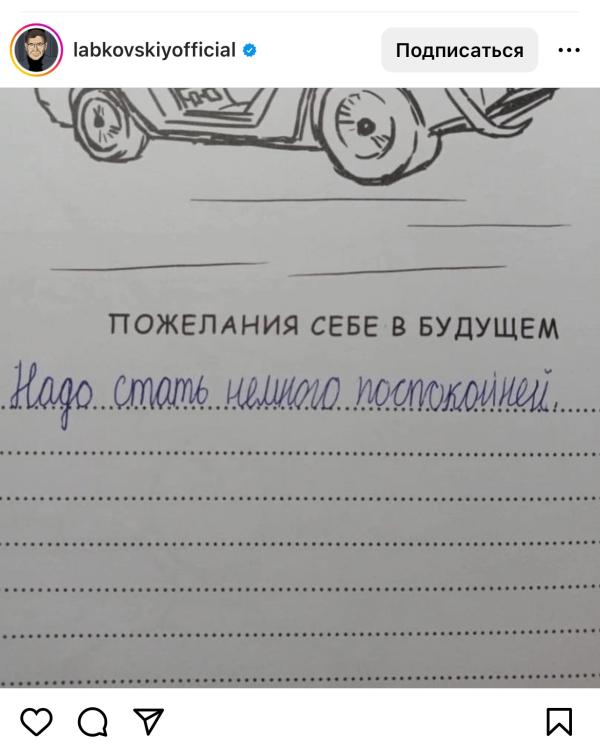 labkovskiyofficial
Подписаться
ПОЖЕЛАНИЯ СЕБЕ В БУДУЩЕМ
Надо стать немного поспокойней.